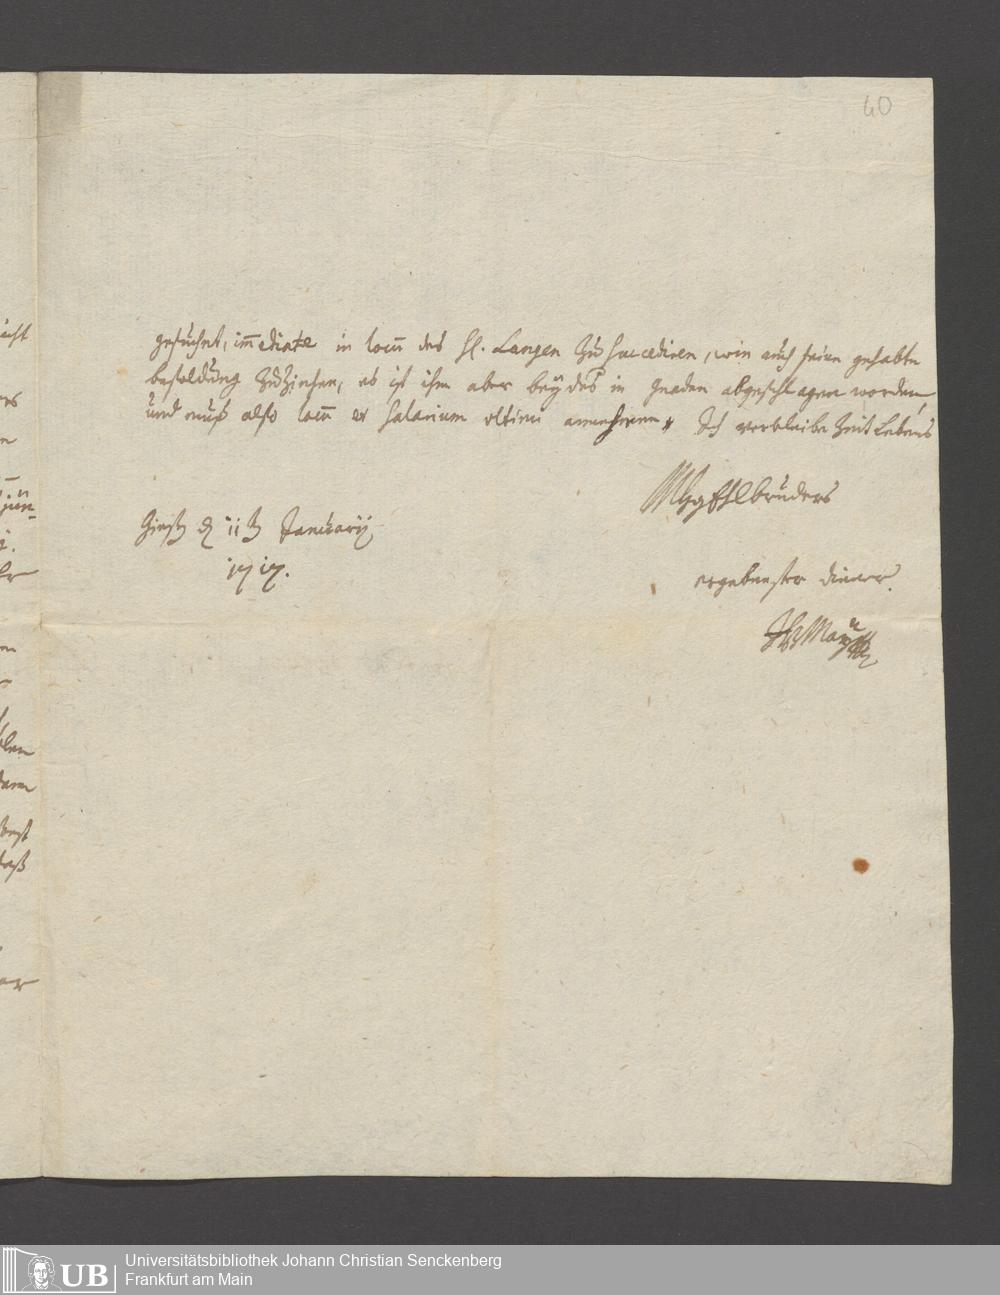 60
gesuchet, im̅ediate in locu̅ des H. Langen zu succediren, wie auch seine gehabte
besoldung zu ziehen, es ist ihm aber beydes in gnaden abgeschlagen worden,
und muß also locu̅ et salarium ultimi annehmen. Ich verbleibe Zeit Lebens
MhgEhlbruders
Gieß d 11 Januarij
1717.
ergebenster diener.
UB
Universitätsbibliothek Johann Christian Senckenberg
Frankfurt am Main